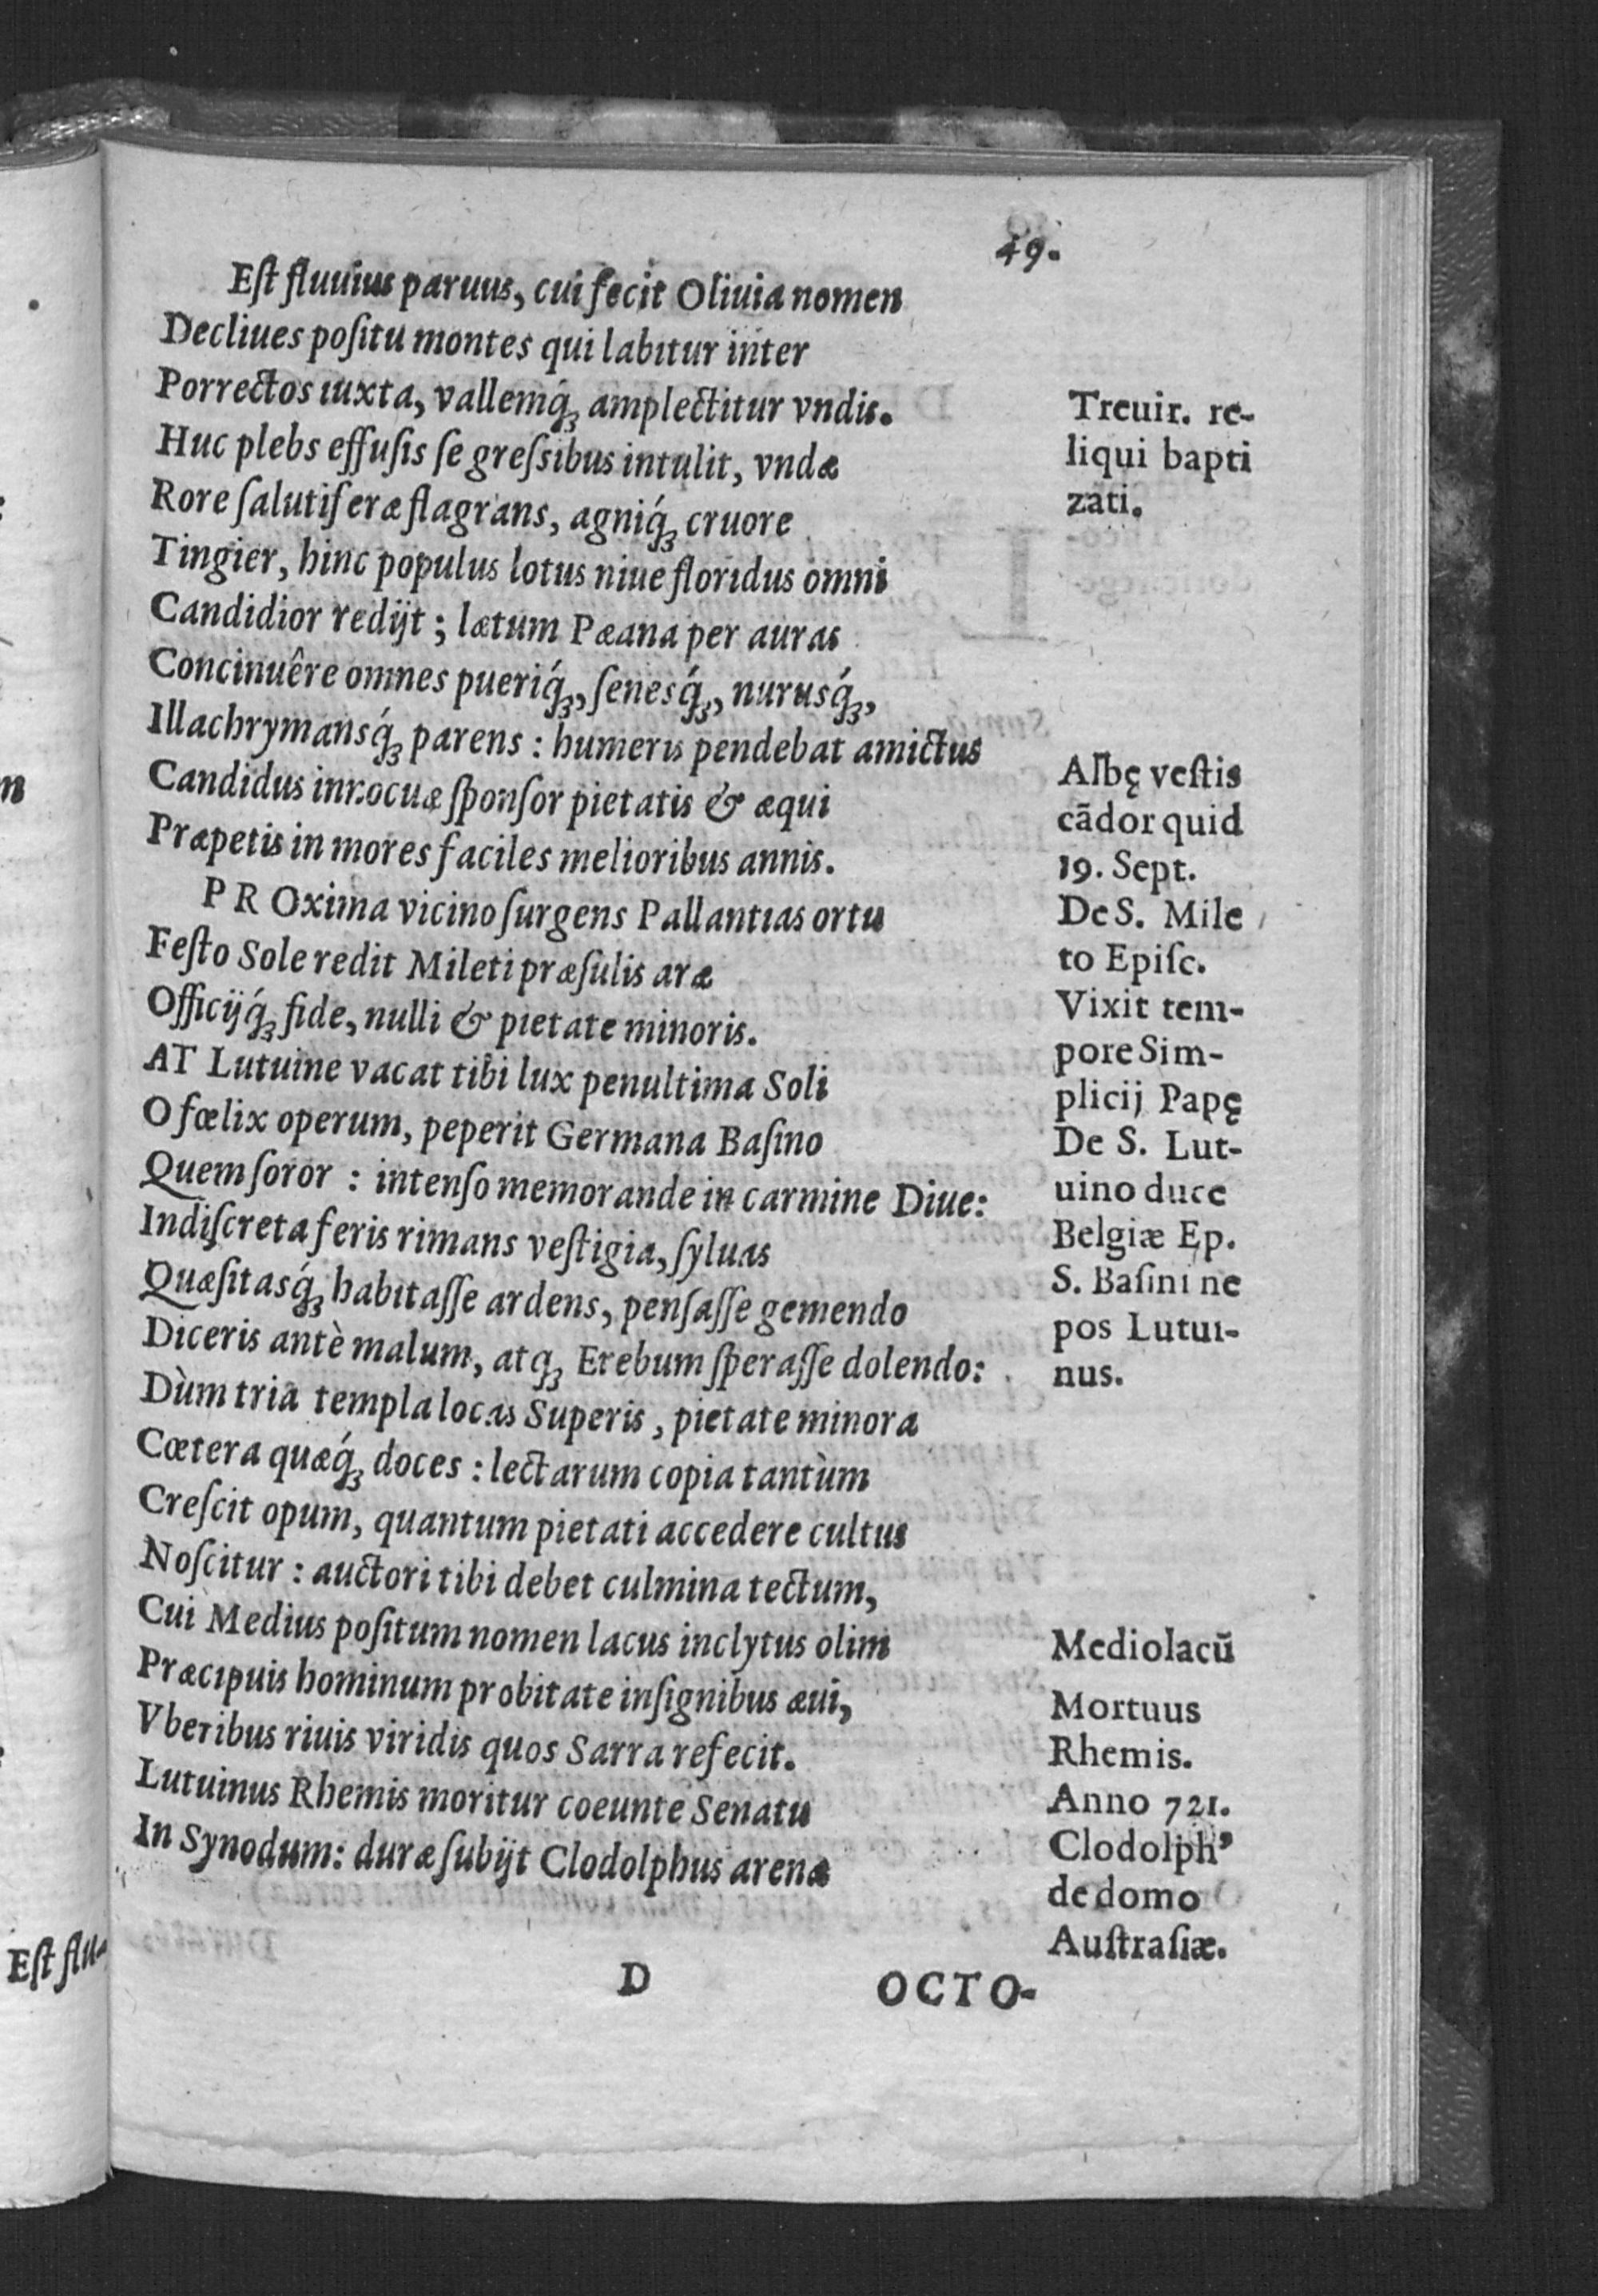 49.
Eſt fluuius paruus, cui fecit Oliuia nomen
Decliues poſitu montes qui labitur inter
Porrectos iuxta, vallemq́ꝫ amplectitur vndis.
Huc plebs effuſis ſe greſsibus intulit, vndæ
Rore ſalutiferæ flagrans, agniq́ꝫ cruore
Tingier, hinc populus lotus niue floridus omni
Candidior redijt; lætum Pæana per auras
Concinuêre omnes pueriq́ꝫ, ſenesq́ꝫ, nurusq́ꝫ,
Illachrymansq́ꝫ parens: humeris pendebat amictus
Candidus innocuæ ſponſor pietatis & æqui
Præpetis in mores faciles melioribus annis.
PROxima vicino ſurgens Pallantias ortu
Feſto Sole redit Mileti præſulis aræ
Officijq́ꝫ fide, nulli & pietate minoris.
AT Lutuine vacat tibi lux penultima Soli
O fœlix operum, peperit Germana Baſino
Quem ſoror: intenſo memorande in carmine Diue:
Indiſcreta feris rimans veſtigia, ſyluas
Quæſitasq́ꝫ habitaſſe ardens, penſaſſe gemendo
Diceris antè malum, atqꝫ Erebum ſperaſſe dolendo:
Dùm tria templa locas Superis, pietate minora
Cœtera quæq́ꝫ doces: lectarum copia tantùm
Creſcit opum, quantum pietati accedere cultus
Noſcitur: auctori tibi debet culmina tectum,
Cui Medius poſitum nomen lacus inclytus olim
Præcipuis hominum probitate inſignibus æui,
Vberibus riuis viridis quos Sarra refecit.
Lutuinus Rhemis moritur coeunte Senatu
In Synodum: duræ ſubijt Clodolphus arenæ
D
OCTO-
Treuir. re-
liqui bapti
zati.
Albę veſtis
cādor quid
19. Sept.
De S. Mile
to Epiſc.
Vixit tem-
pore Sim-
plicij Papę
De S. Lut-
uino duce
Belgiæ Ep.
S. Baſini ne
pos Lutui-
nus.
Mediolacū
Mortuus
Rhemis.
Anno 721.
Clodolph'
de domo
Auſtraſiæ.
Eſt flu-